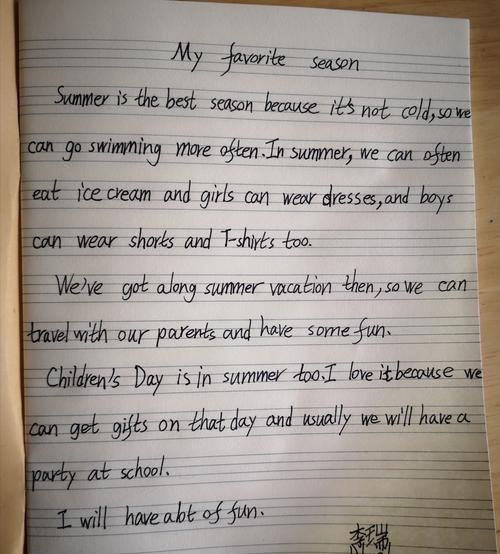 My favorite season
Summer is the best season because it's not cold, so we
can go swimming more often. In summer, we can often
eat ice cream and girls can wear dresses, and boys
can wear shorts and T-shirts too.
We've got along summer vacation then, so we can
travel with our parents and have some fun.
Children's Day is in summer too. I love it because we
can get gifts on that day and usually we will have a
party at school.
I will have a lot of fun.
李瑞